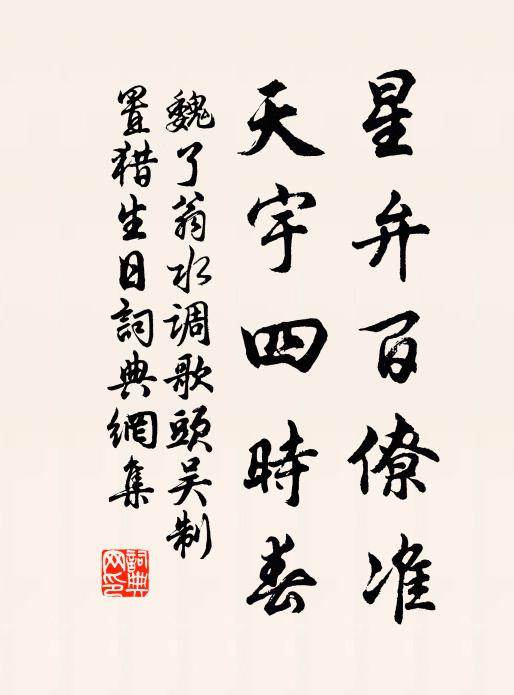 星弁百僚准
天宇四時春
魏了翁水调歌頭吴制
置猎生日詞典網集
詞典网印